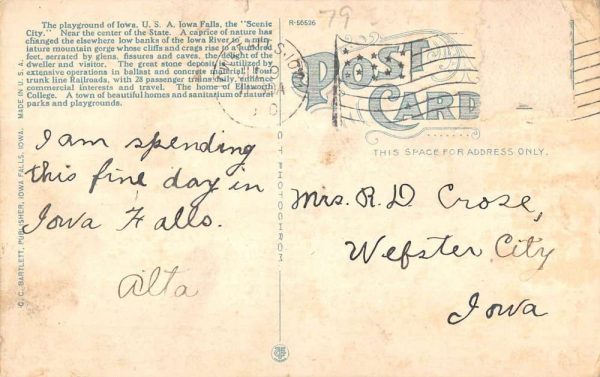 The playground of Iowa. U. S. A. Iowa Falls, the "Scenic
City." Near the center of the State. A caprice of nature has
changed the elsewhere low banks of the Iowa River to a min-
iature mountain gorge whose cliffs and crags rise to a hundred
feet, serrated by glens, fissures and caves, the delight of the
dweller and visitor. The great stone deposit is utilized by
extensive operations in ballast and concrete material. Four
trunk line Railroads, with 28 passenger trains daily, enhance
commercial interests and travel. The home of Ellsworth
College. A town of beautiful homes and sanitarium of natural
parks and playgrounds.
R-56526
79
POST
CARD
THIS SPACE FOR ADDRESS ONLY.
I am spending
this fine day in
Iowa Falls.
Alta
Mrs. R. D. Crose,
Webster City
Iowa
C. C. BARTLETT, PUBLISHER, IOWA FALLS, IOWA.
MADE IN U. S. A.
C T PHOTOCHROM